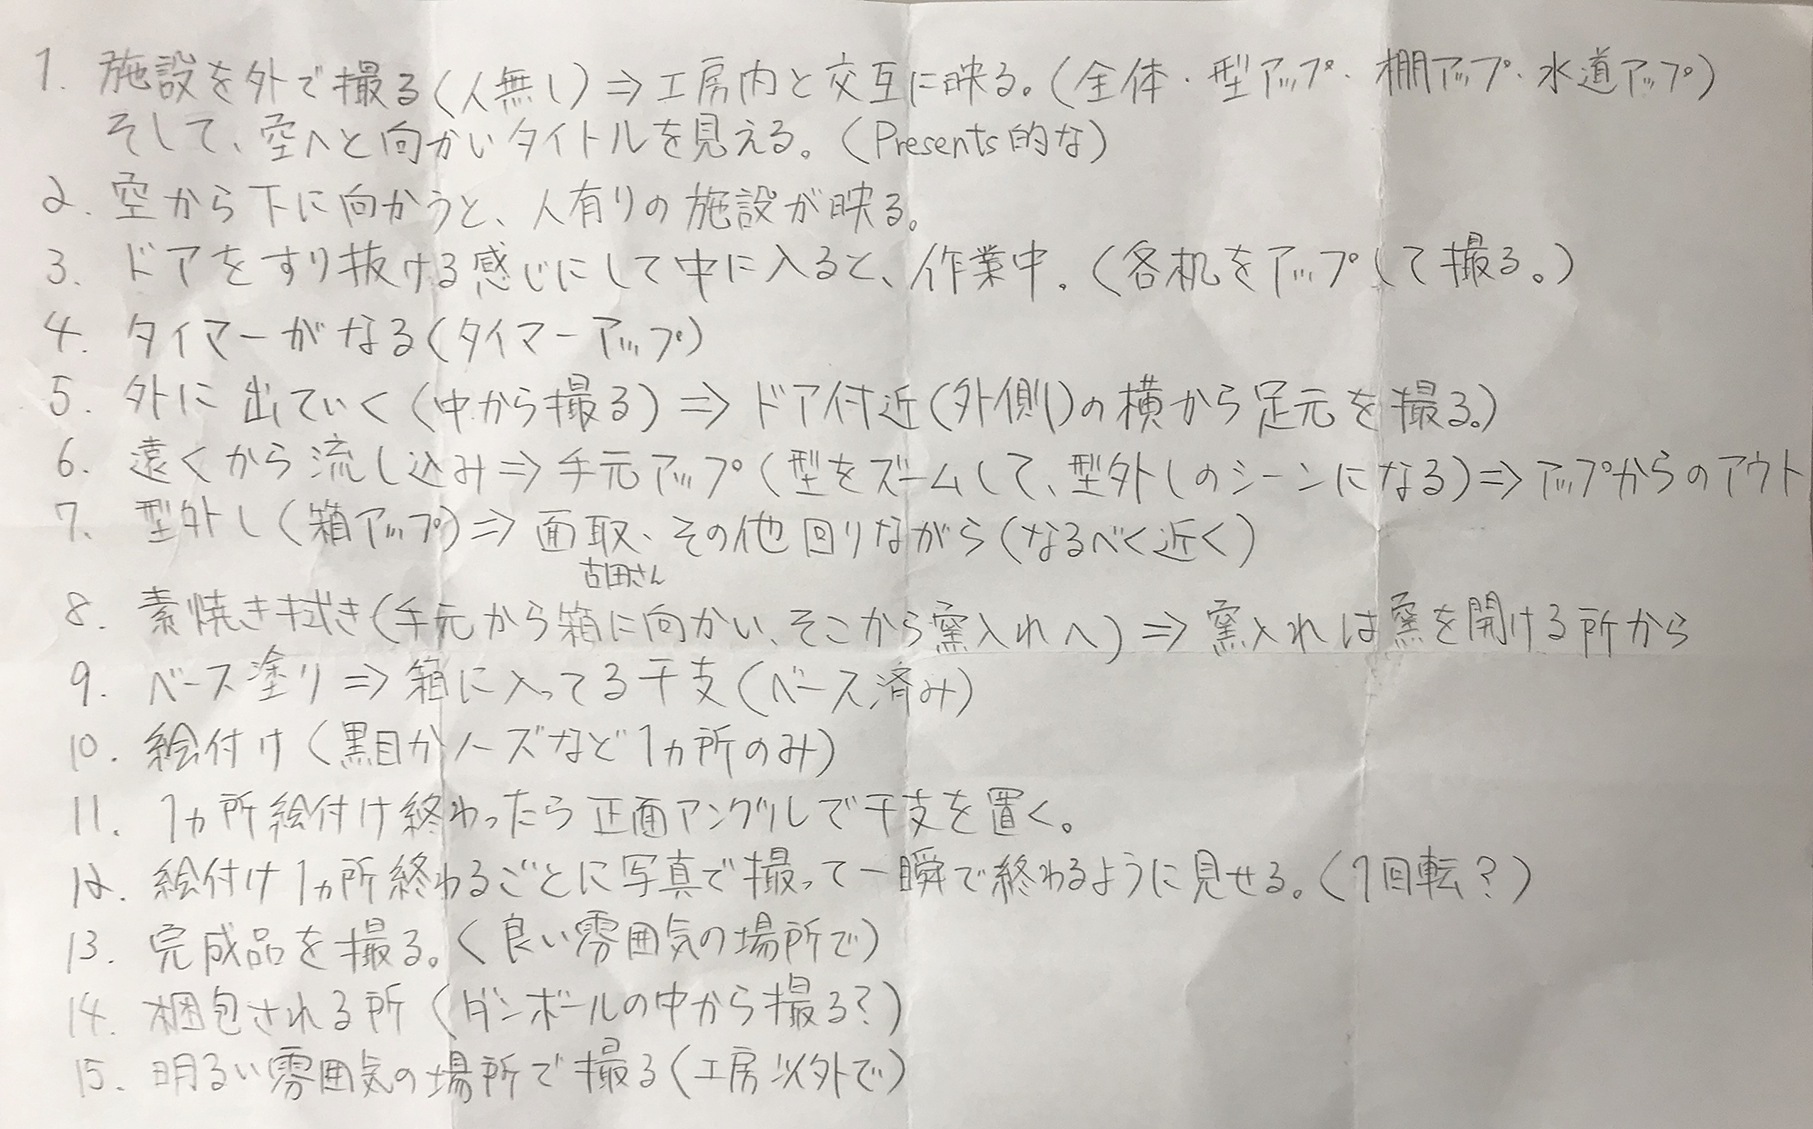 1. 施設を外で撮る(人無し)⇒工房内と交互に映る。(全体・型アップ・棚アップ・水道アップ)
そして、空へと向かいタイトルを見える。(Presents的な)
2. 空から下に向かうと、人有りの施設が映る。
3. ドアをすり抜ける感じにして中に入ると、作業中。(各机をアップして撮る。)
4. タイマーがなる(タイマーアップ)
5. 外に出ていく(中から撮る)⇒ドア付近(外側)の横から足元を撮る。)
6. 遠くから流し込み⇒手元アップ(型をズームして、型外しのシーンになる)⇒アップからのアウト
7. 型外し(箱アップ)⇒面取、その他回りながら(なるべく近く)
古田さん
8. 素焼き拭き(手元から箱に向かい、そこから窯入れへ)⇒窯入れは窯を開ける所から
9. ベース塗り⇒箱に入ってる干支(ベース済み)
10. 絵付け(黒目かノーズなど1ヵ所のみ)
11. 1ヵ所絵付け終わったら正面アングルで干支を置く。
12. 絵付け1ヵ所終わるごとに写真で撮って一瞬で終わるように見せる。(1回転?)
13. 完成品を撮る。(良い雰囲気の場所で)
14. 梱包される所(ダンボールの中から撮る?)
15. 明るい雰囲気の場所で撮る(工房以外で)